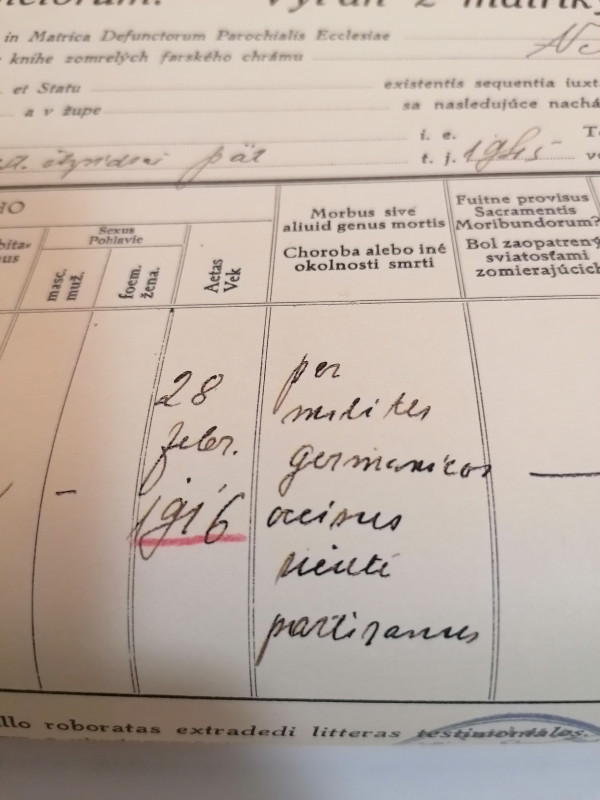 Výťah z matriky
in Matrica Defunctorum Parochialis Ecclesiae
knihe zomrelých farského chrámu
et Statu existentis sequentia iuxt
a v župe sa nasledujúce nachá
i. e.
päť t. j. 1945
Sexus
Pohlavie
masc.
muž.
foem.
žena.
Aetas
Vek
Morbus sive
aliuid genus mortis
Choroba alebo iné
okolnosti smrti
Fuitne provisus
Sacramentis
Moribundorum?
Bol zaopatrený
sviatosťami
zomierajúcich
28
febr.
1916
per
milites
germanicos
occisus
sicuti
partizanus
—
llo roboratas extradedi litteras testimoniales.